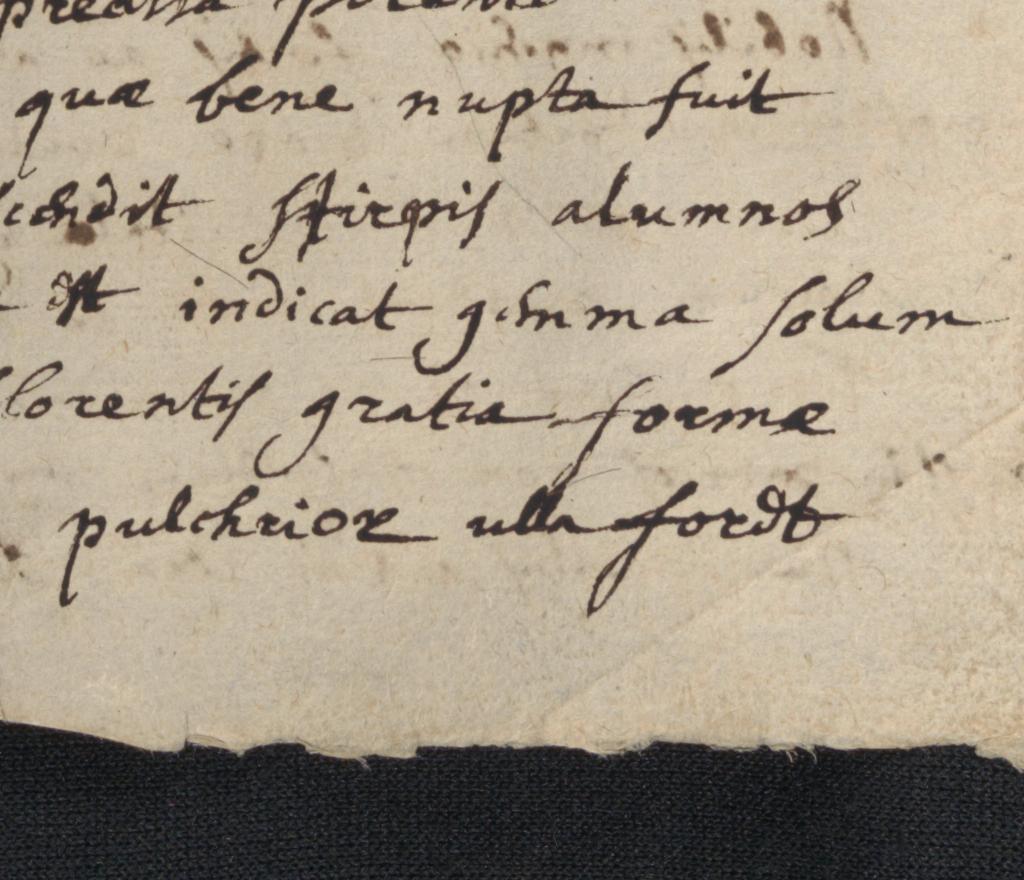 quæ bene nupta fuit
stirpis alumnos
est indicat gemma solum
lorentis gratia formæ
pulchrior ulla foret